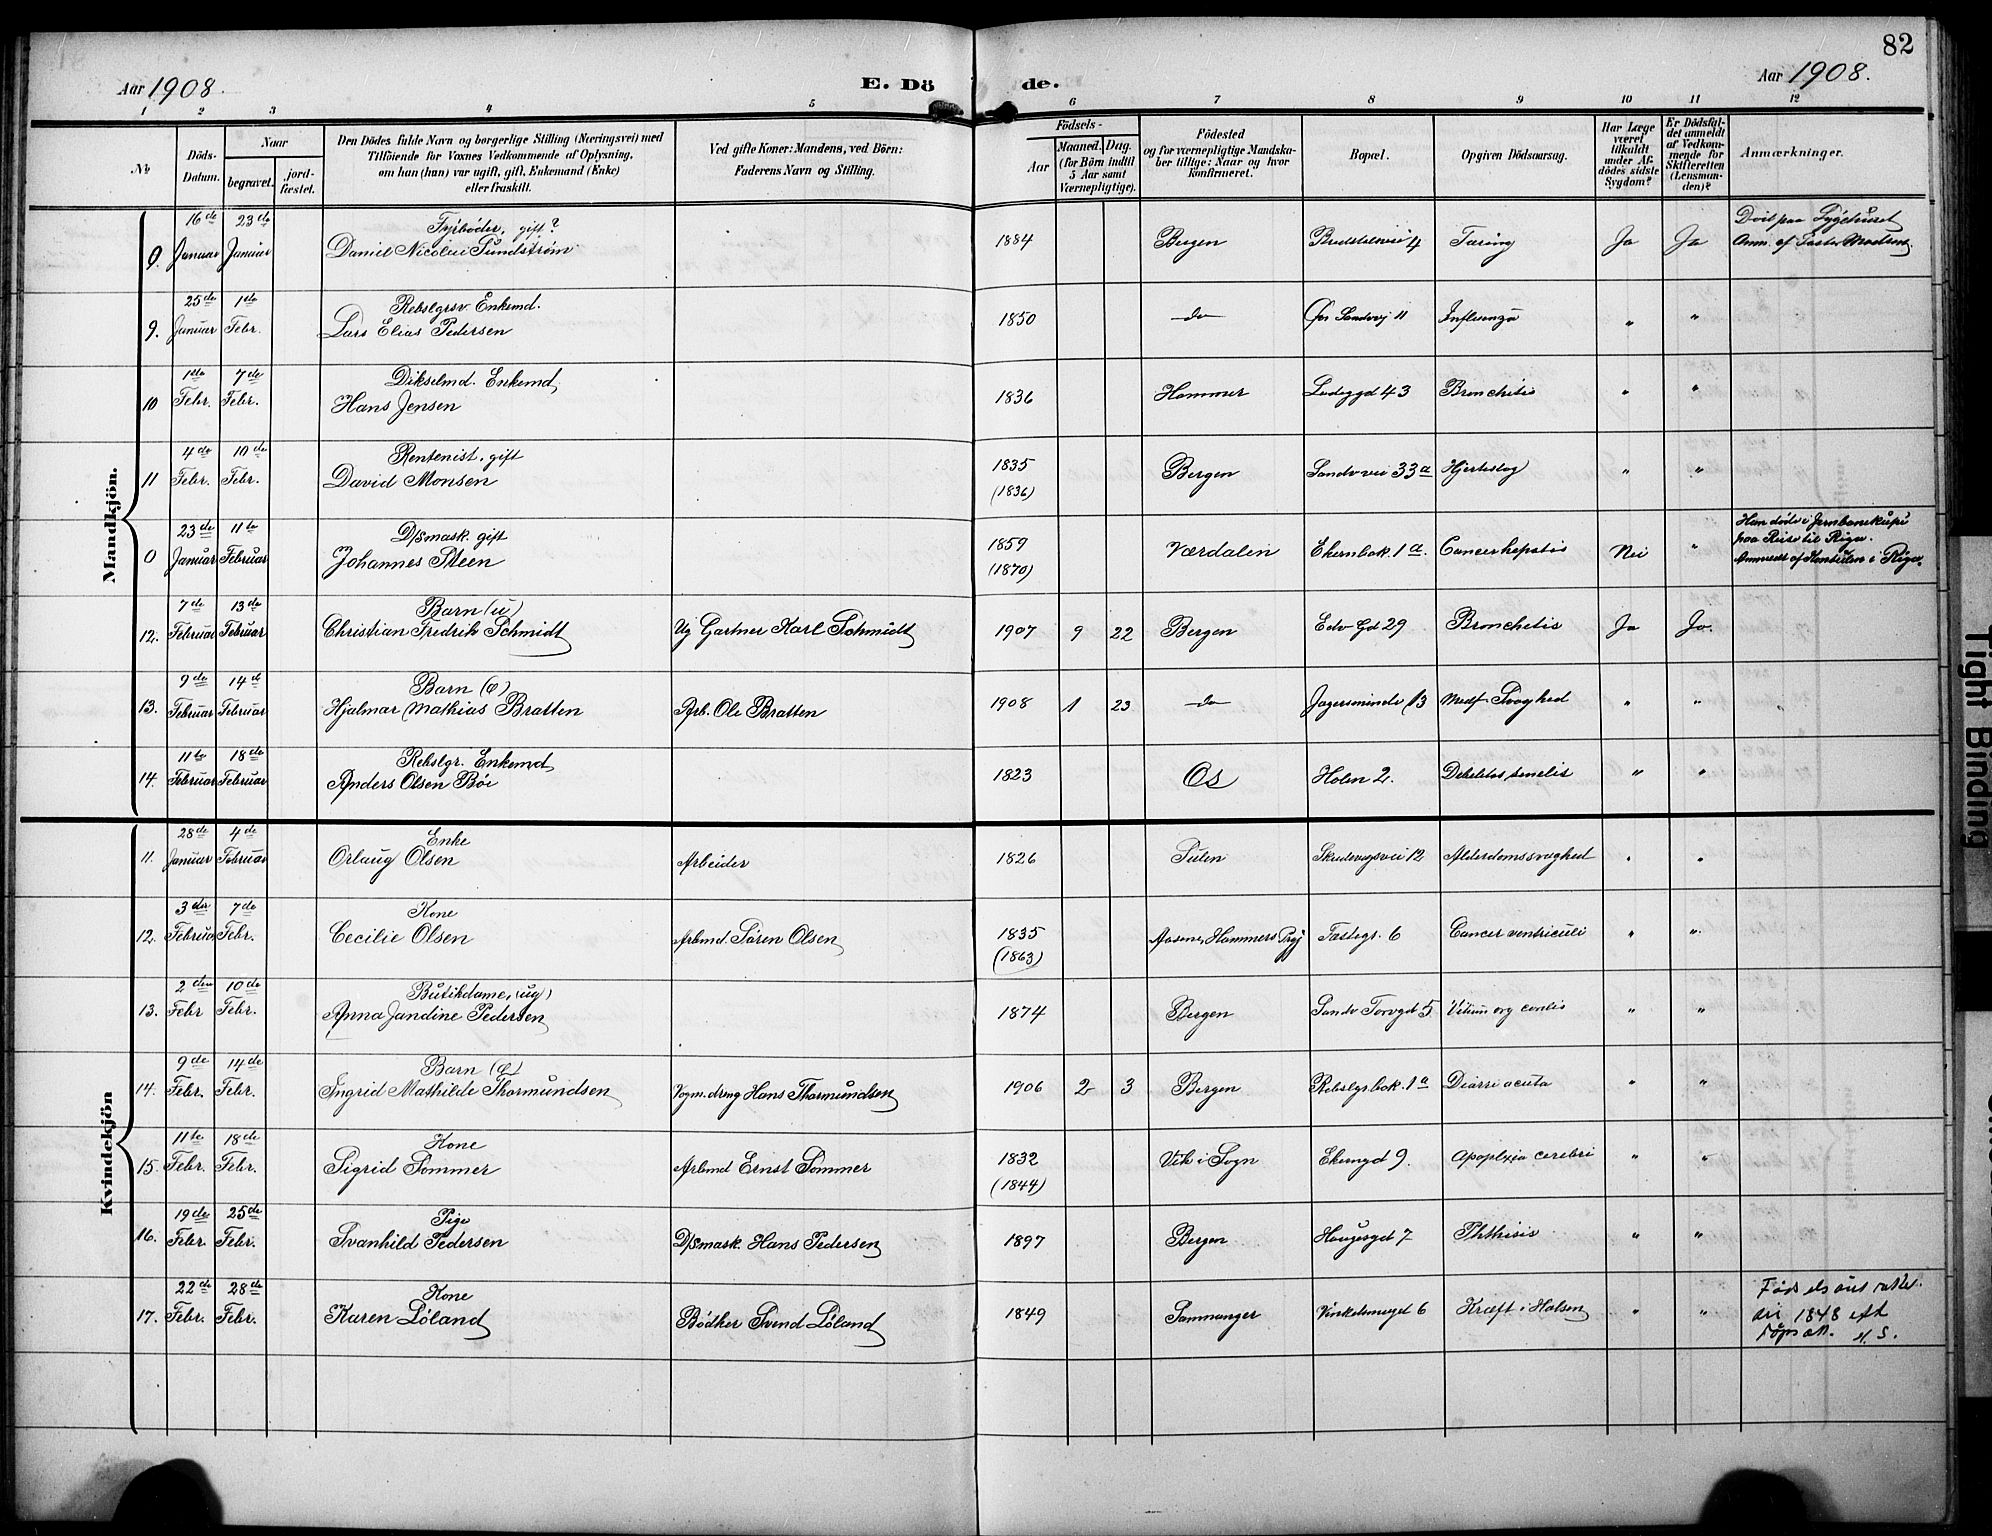 82
Aar 1908.
E. Dö de.
Aar 1908.
1 2 3 4 5 6 7 8 9 10 11 12
No
Döds-
Datum.
Naar
begravet.
jord-
fæstet.
Den Dödes fulde Navn og borgerlige Stilling (Næringsvei) med
Tilföiende for Voxnes Vedkommende af Oplysning,
om han (hun) var ugift, gift, Enkemand (Enke)
eller fraskilt.
Ved gifte Koner: Mandens, ved Börn:
Faderens Navn og Stilling.
Födsels-
Aar
Maaned. Dag.
(for Börn indtil
5 Aar samt
Værnepligtige).
Födested
og for værnepligtige Mandska-
ber tillige: Naar og hvor
konfirmeret.
Bopæl.
Opgiven Dödsaarsag.
Har Læge
været
tilkaldt
under Af-
dödes sidste
Sygdom?
Er Dödsfal-
det anmeldt
af Vedkom-
mende for
Skifteretten
(Lensman-
den)?
Anmærkninger.
Mandkjön.
16de 23de Fyrböder, gift?
0. Januar Januar Daniel Nicolai Sundström 1884 Bergen 4 Tæring Ja Ja
25de 1ste Rebslgrsv. Enkemd.
9. Januar Febr. Lars Elias Pedersen 1850 do Sandvej 11 Influenza " "
1ste 7de Enkemd,
10 Febr. Febr. Hans Jensen 1836 Hammer Ladeggd 43 Bronchitis " "
4de 10de Rentenist, gift
11 Febr. Febr. David Monsen 1835 Bergen Sandv.vei 33a Hjerteslag " "
(1836)
23de 11te D/Smask. gift
0 Januar Februar Johannes Steen 1859 Værdalen Ekernbak. 1a. Cancer hepatis Nei "
(1870)
Han döde i Jernbanekupe
paa Reise til Riga.
Anmeldt af Konsulen i Riga.
7de 13de Barn (u)
12. Februar Februar Christian Fredrik Schmidt Ug Gartner Karl Schmidt 1907 9 22 Bergen Edv Gd 29 Bronchitis Ja Ja.
9de 14de Barn (e)
13. Februar Februar Hjalmar Mathias Bratten Arb. Ole Bratten 1908 1 23 do Jægersminde 13 Medf Svaghed " "
11te 18de Rebslgr. Enkemd,
14. Februar Februar Anders Olsen Böe 1823 Os Holen 2. Debilitas senilis " "
Kvindekjön
28de 4de Enke
11. Januar Februar Orlaug Olsen Arbeider 1826 Sulen Skudeviksvei 12 Alderdomssvaghed " "
3die 7de Kone
12. Februar Febr. Cecilie Olsen Arbmd. Sören Olsen 1835 Hammers Prgj 6 Cancer ventriculi " "
(1863)
2den 10de Butikdame, (ug)
13. Febr Febr. Anna Jandine Pedersen 1874 Bergen Sandv Torvgd 5 Vitium org cordis " "
9de 14de Barn (e)
14. Febr. Febr. Ingrid Mathilde Thormundsen Vogm.dreng Hans Thormundsen 1906 2 3 Bergen Rebslgrbak. 1a Diarre acuta " "
11te 18de Kone
15. Febr. Febr. Sigrid Sommer Arbmd Ernst Sommer 1832 Vik i Sogn Ekerngd 9. Apoplexia cerebri " "
(1844)
19de 25de Pige
16. Febr. Febr. Svanhild Pedersen D/Smask. Hans Pedersen 1897 Bergen Haugesgd 7 Phthisis " "
22de 28de Kone
17. Febr. Febr. Karen Löland Bödker Svend Löland 1849 Samnanger 6 Kræft i Halsen " "
1848
Tight Binding